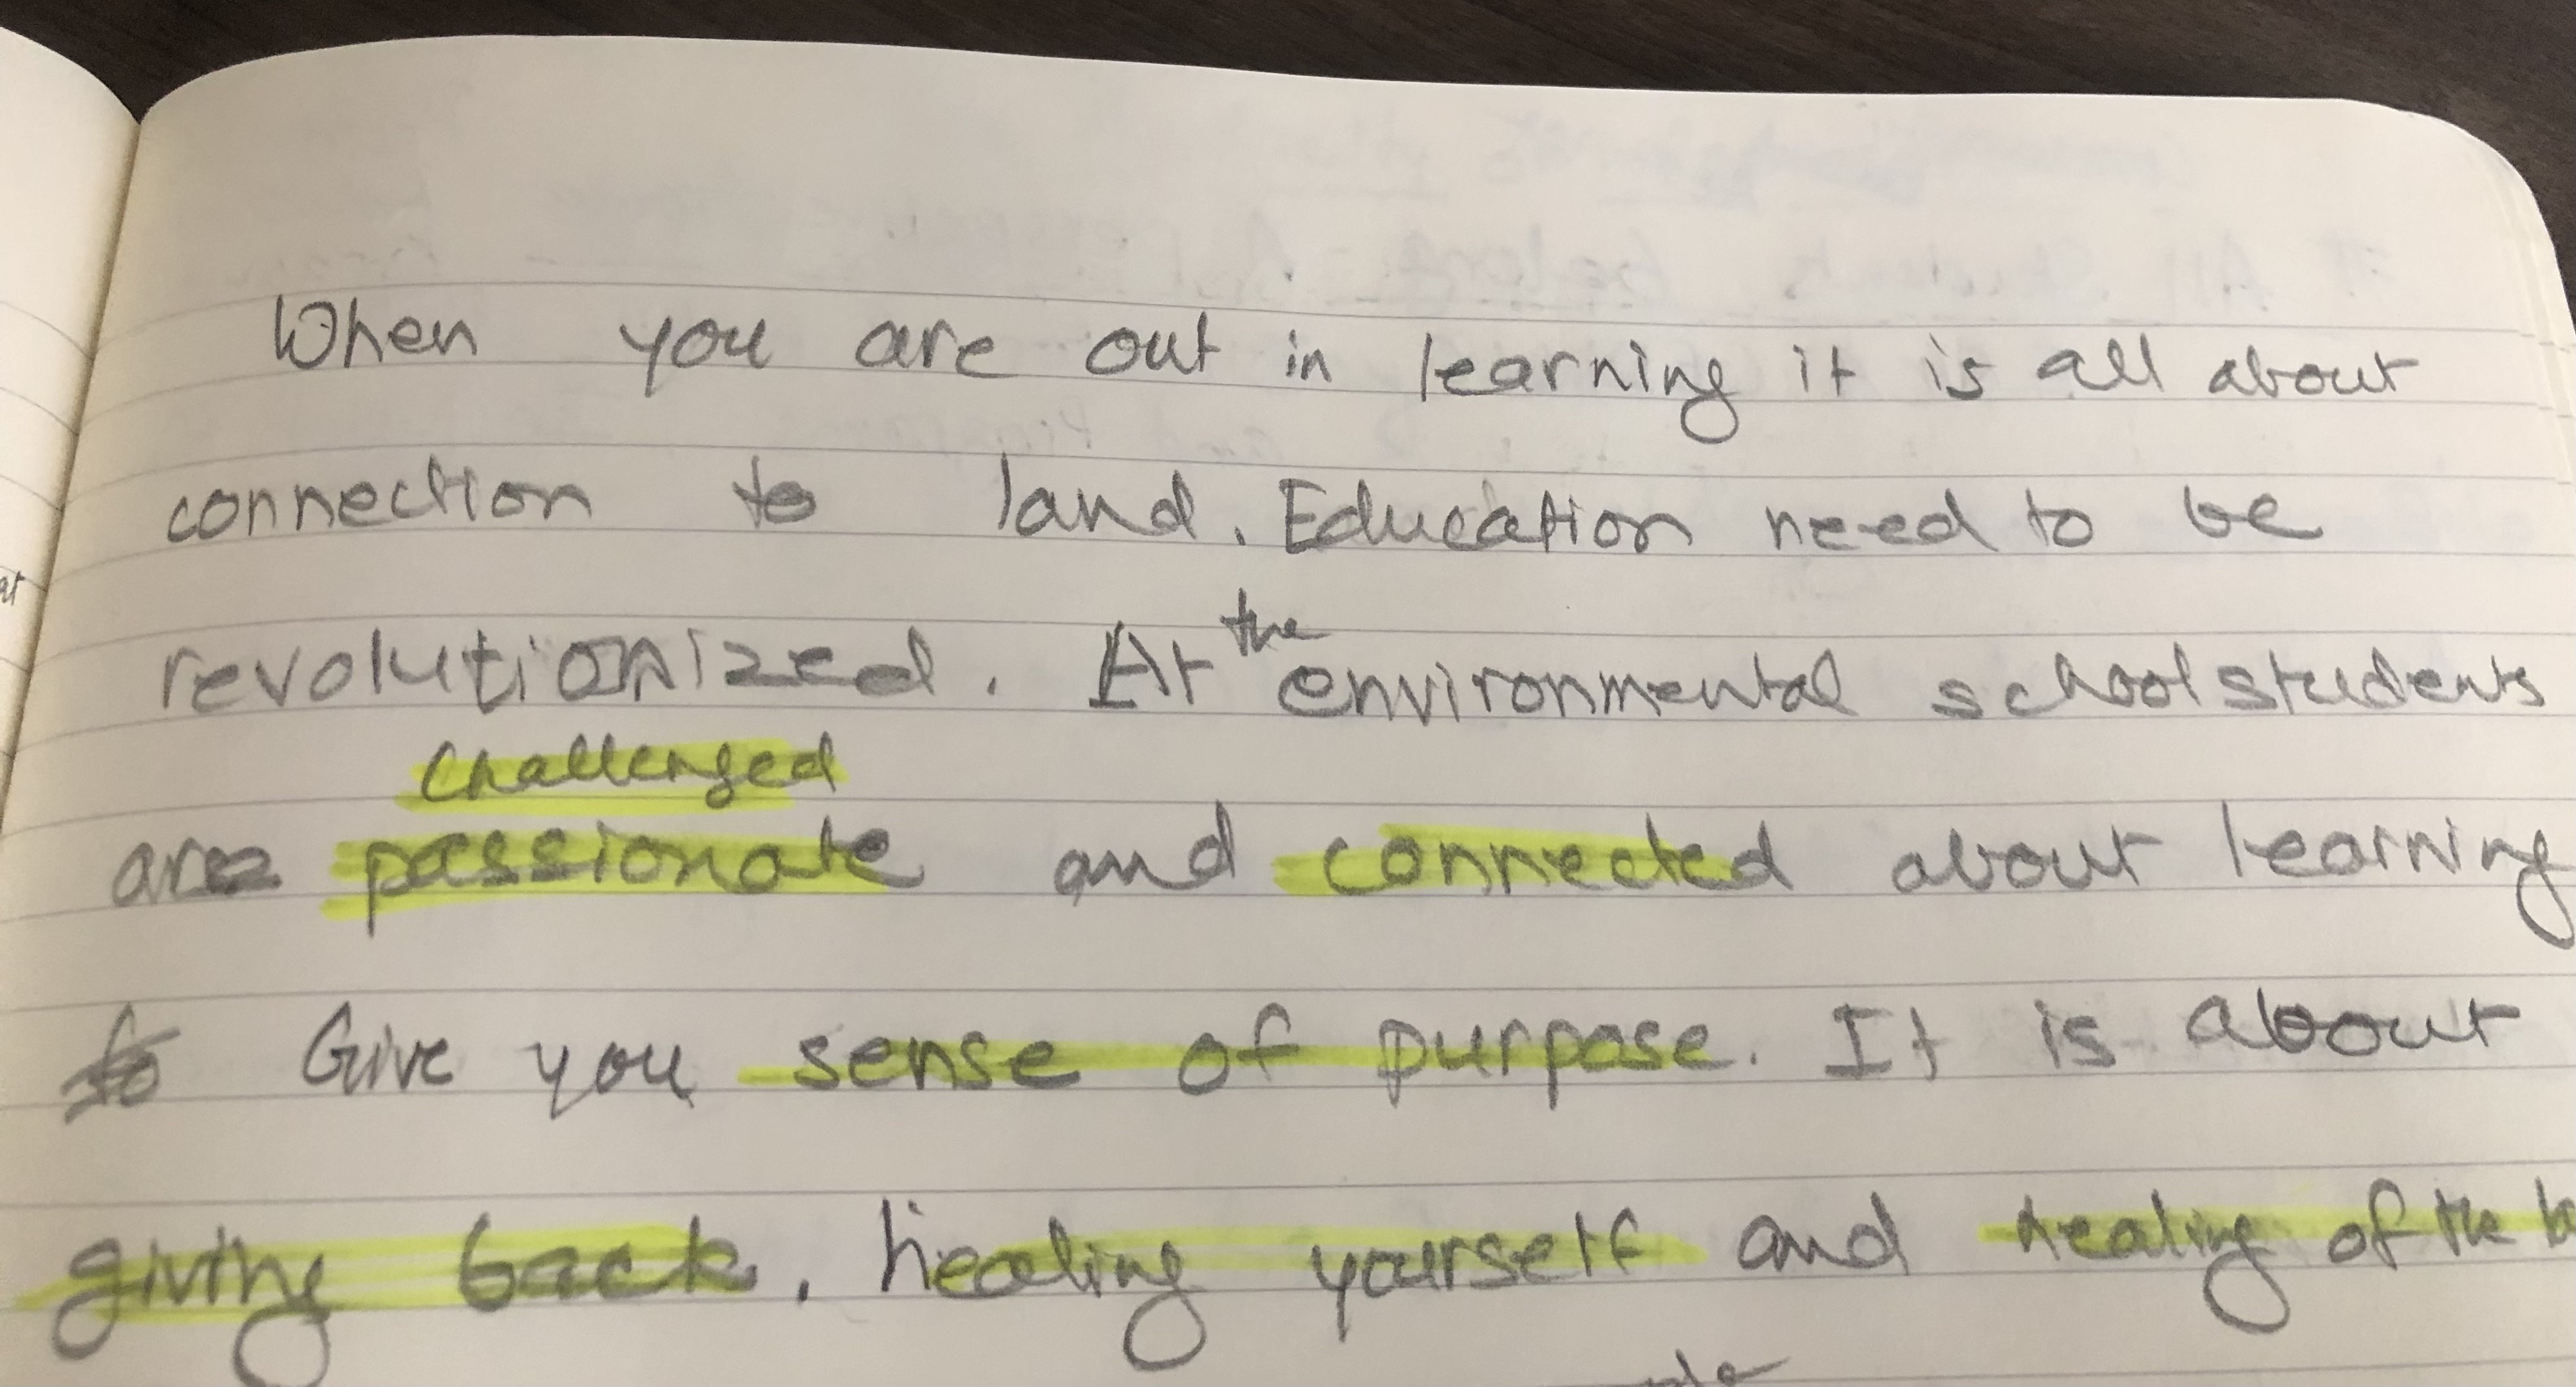 When you are out in learning it is all about
connection to land. Education need to be
the
revolutionized. At environmental school students
challenged
are passionate and connected about learning
Give you sense of purpose. It is about
giving back, healing yourself and healing of the